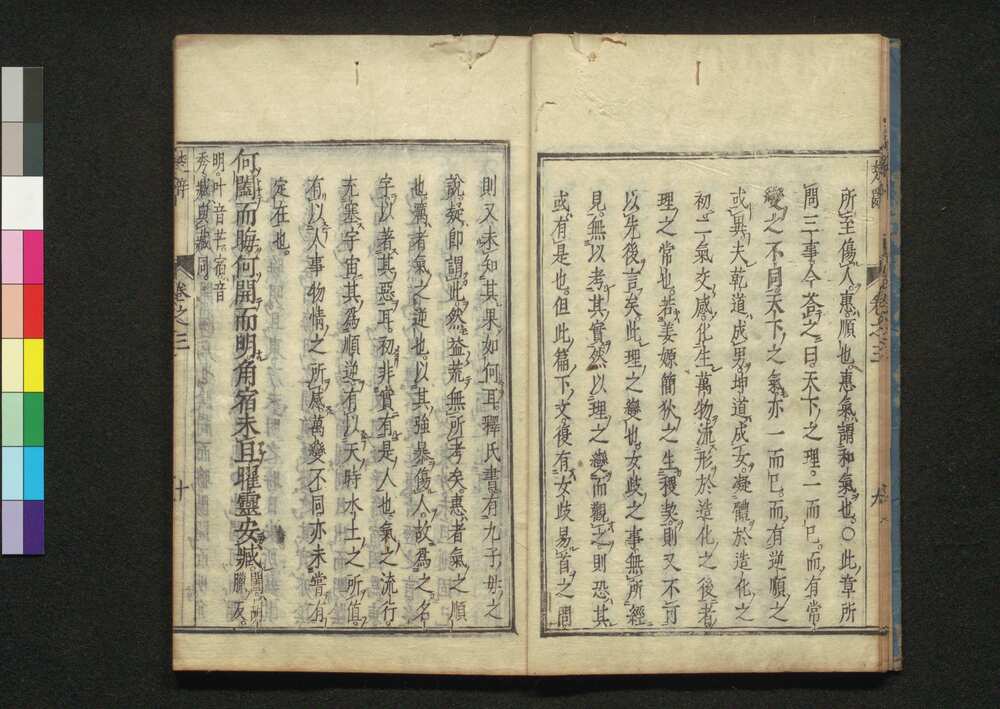 所至傷人惠順也惠氣謂和氣也○此章所
問三事今荅之曰天下之理一而已而有常
變之不同天下之氣亦一而已而有逆順之
或異夫乾道成男坤道成女凝體於造化之
初二氣交感化生萬物流形於造化之後者
理之常也若姜嫄簡狄之生稷契則又不可
以先後言矣此理之變也女歧之事無所經
見無以考其實然以理之變而觀之則恐其
或有是也但此篇下文復有女歧易首之問
卷之三
九
則又未知其果如何耳釋氏書有九子母之
說疑即謂此然益荒無所考矣惠者氣之順
也厲者氣之逆也以其強暴傷人故爲之名
字以著其惡耳初非實有是人也氣之流行
充塞宇宙其爲順逆有以天時水土之所值
有以人事物情之所感萬變不同亦未嘗有
定在也
何闔而晦何開而明角宿未旦曜靈安臧闔胡臘反
明叶音芒宿音
秀臧與藏同
楚辭
卷之三
十